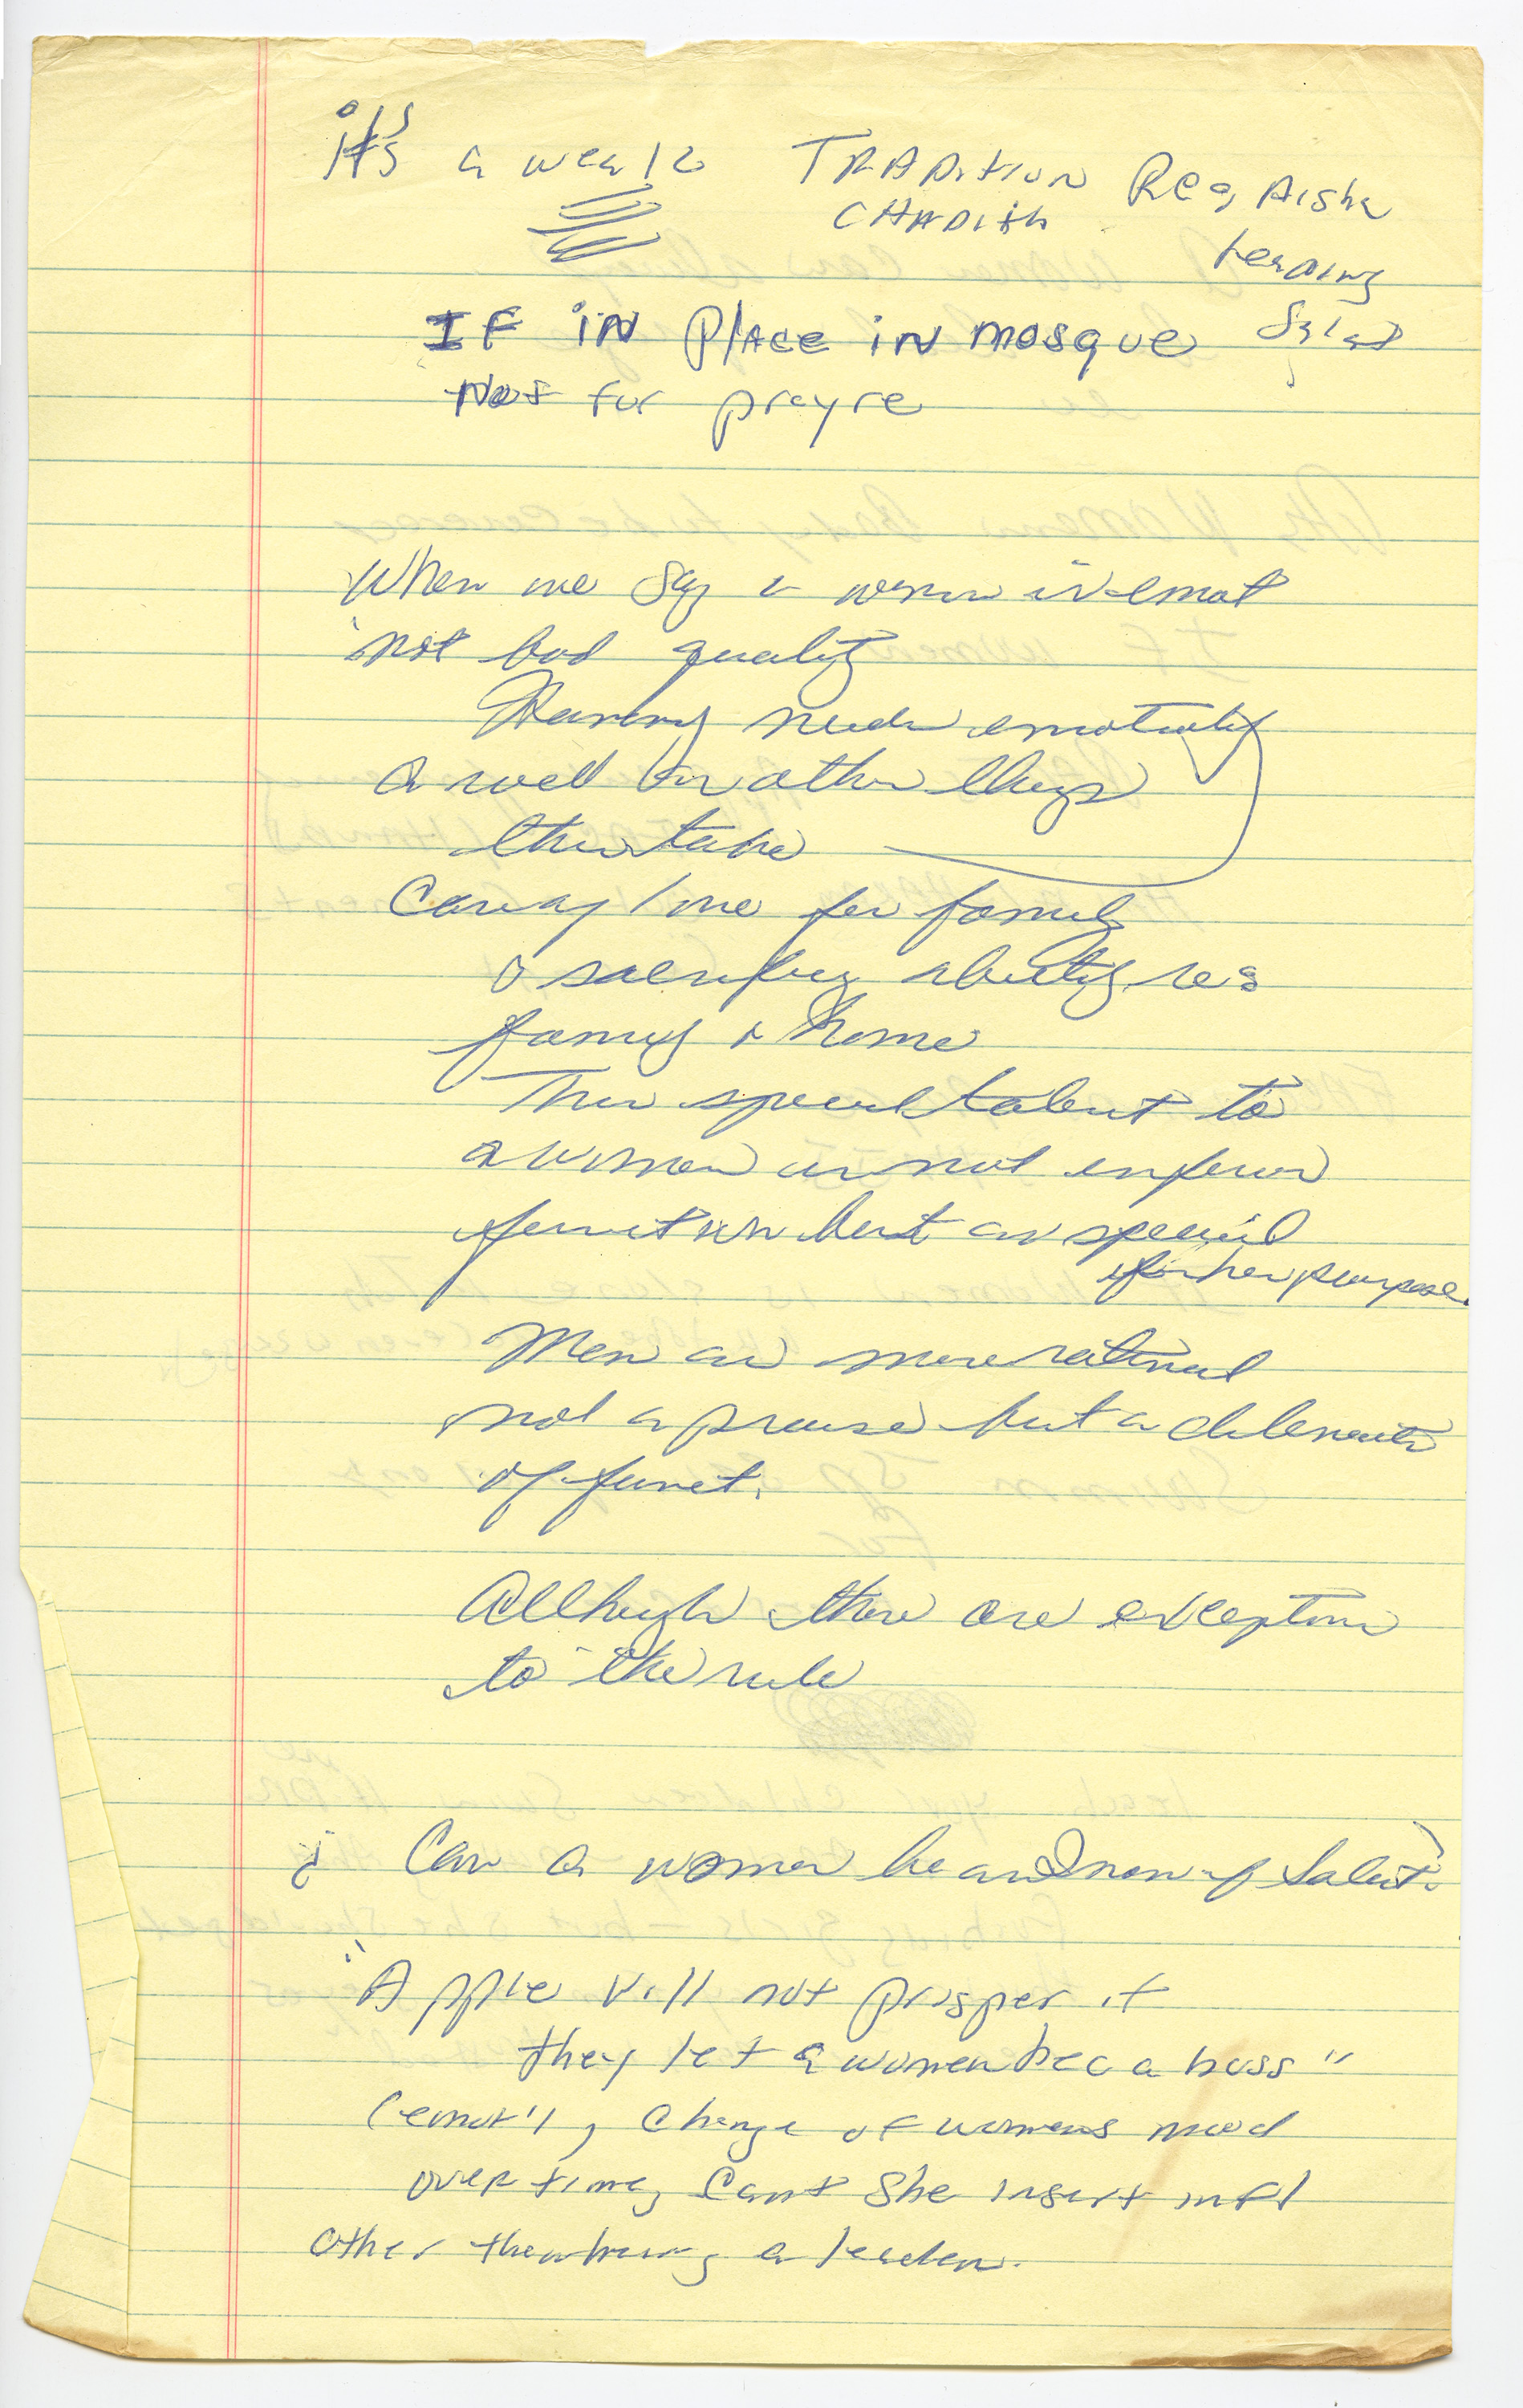 it's
It's a weak TRADition Reg Aisha
CHADith leading
IF iN PlAce iN mosque Salat
Not for prayre
When we say a woman is emot
not bad quality
needs emotionality
as well as other things
Caring / love for family
& sacrificing ability re:
family & home
This special talent to
a woman is not inferior
function but as special
for her purpose.
Men are more rational
not a praise but a
of funct.
Although there are exceptions
to the rule
¿ Can a woman be an Imam of Salat?
"A pple will not prosper if
they let a women bec a boss"
(emot'l, change of womens mood
over time, Cant she insert infl
other than being a leader.